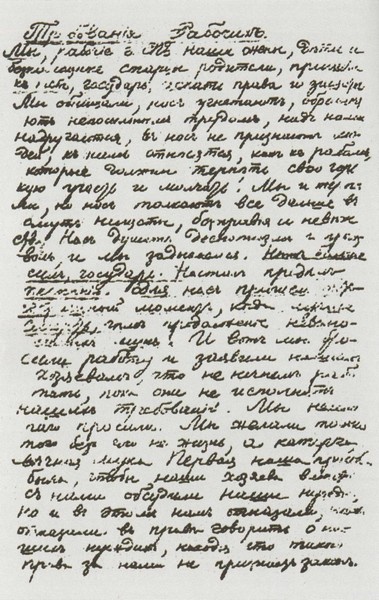 Требованія Рабочихъ.
Мы, рабочіе г. СПБ наши жены, дѣти и
безпомощные старцы родители, пришли
къ тебѣ, государь, искать правды и защиты
Мы обнищали, насъ угнетаютъ, обременя
ютъ непосильнымъ трудомъ, надъ нами
надругаются, въ насъ не признаютъ лю
дей, къ намъ относятся, какъ къ рабамъ,
которые должны терпѣть свою горь
кую участь и молчать! Мы и терпѣ
ли, но насъ толкаютъ все дальше въ
омутъ нищеты, безправія и невѣже
ства! Насъ душитъ деспотизмъ и произ
волъ, и мы задыхаемся. Нѣтъ больше
силъ, государь. Насталъ предѣлъ
терпѣнію. Для насъ пришелъ
моментъ, когда
продолженіе невыно
мукъ! И вотъ мы бро
сили работу и заявили нашимъ
хозяевамъ, что не начнемъ рабо
тать, пока они не исполнятъ
нашихъ требованій. Мы немно
гаго просили. Мы желали только
того безъ чего не жизнь, а каторга
вѣчная мука Первая наша просьба
была, чтобы наши хозяева вмѣстѣ
съ нами обсудили наши нужды,
Но и въ этомъ намъ отказали, намъ
отказали въ правѣ говорить о на
шихъ нуждахъ, находя что такого
права за нами не признаетъ законъ.